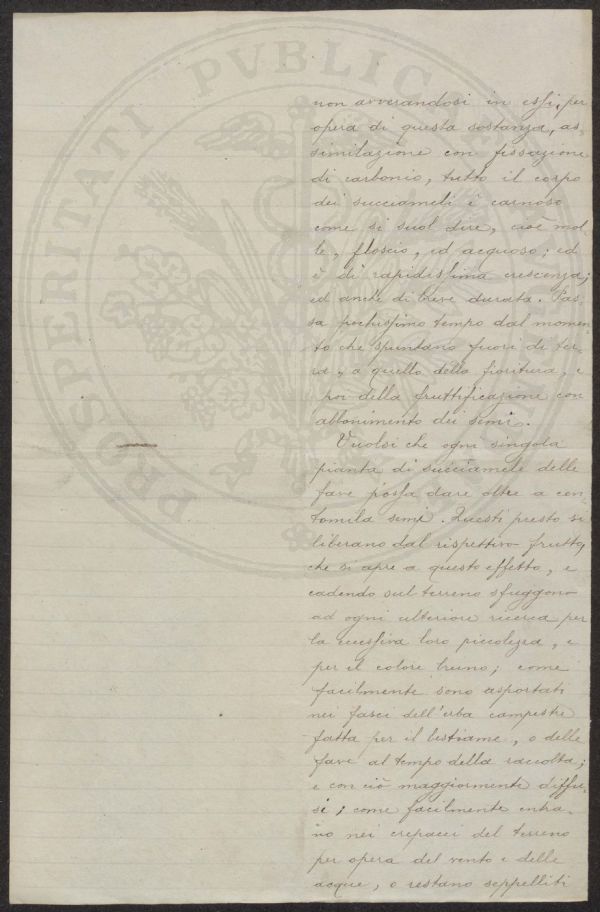 PROSPERITATI PVBLICAE
non avverandosi in essi, per
opera di questa sostanza, as-
similazione con fissazione
di carbonio, tutto il corpo
dei succiameli è carnoso
come si suol dire, cioè mol-
le, floscio, ed acquoso; ed
è di rapidissima crescenza;
ed anche di breve durata. Pas-
sa pochissimo tempo dal momen-
to che spuntano fuori di ter-
ra, a quello della fioritura, e
poi della fruttificazione con
abbonimento dei semi.
Vuolsi che ogni singola
pianta di succiamele delle
fave possa dare oltre a cen-
tomila semi. Questi presto si
liberano dal rispettivo frutto,
che si apre a questo effetto, e
cadendo sul terreno sfuggono
ad ogni ulteriore ricerca per
la eccessiva loro piccolezza, e
per il colore bruno; come
facilmente sono asportati
nei fasci dell'erba campestre
fatta per il bestiame, o delle
fave al tempo della raccolta;
e con ciò maggiormente diffu-
si; come facilmente entra-
no nei crepacci del terreno
per opera del vento e delle
acque, o restano seppelliti